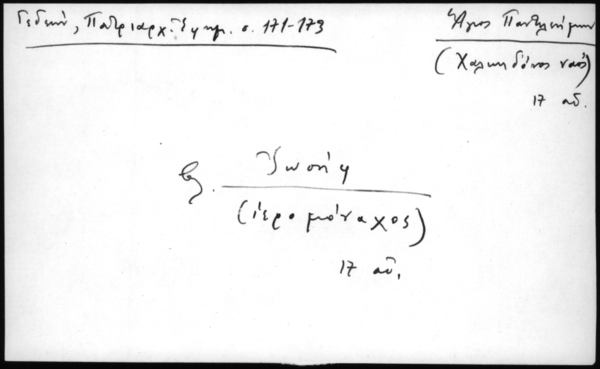 Γεδεών, Πατριαρχ. Ἐφημ. σ. 171-173
Ἅγιος Παντελεήμων
(Χαλκηδόνος ναός)
17 αἰ.
βλ. Ἰωσήφ
(ἱερομόναχος)
17 αἰ.